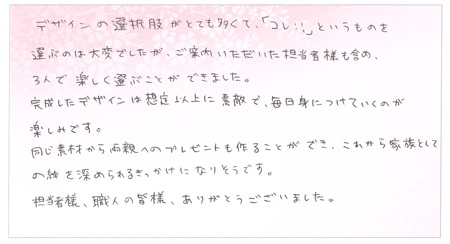 デザインの選択肢がとても多くて、「コレ!!」というものを
選ぶのは大変でしたが、ご案内いただいた担当者様も含め、
3人で楽しく選ぶことができました。
完成したデザインは想定以上に素敵で、毎日身につけていくのが
楽しみです。
同じ素材から両親へのプレゼントも作ることができ、これから家族として
の絆を深められるきっかけになりそうです。
担当者様、職人の皆様、ありがとうございました。